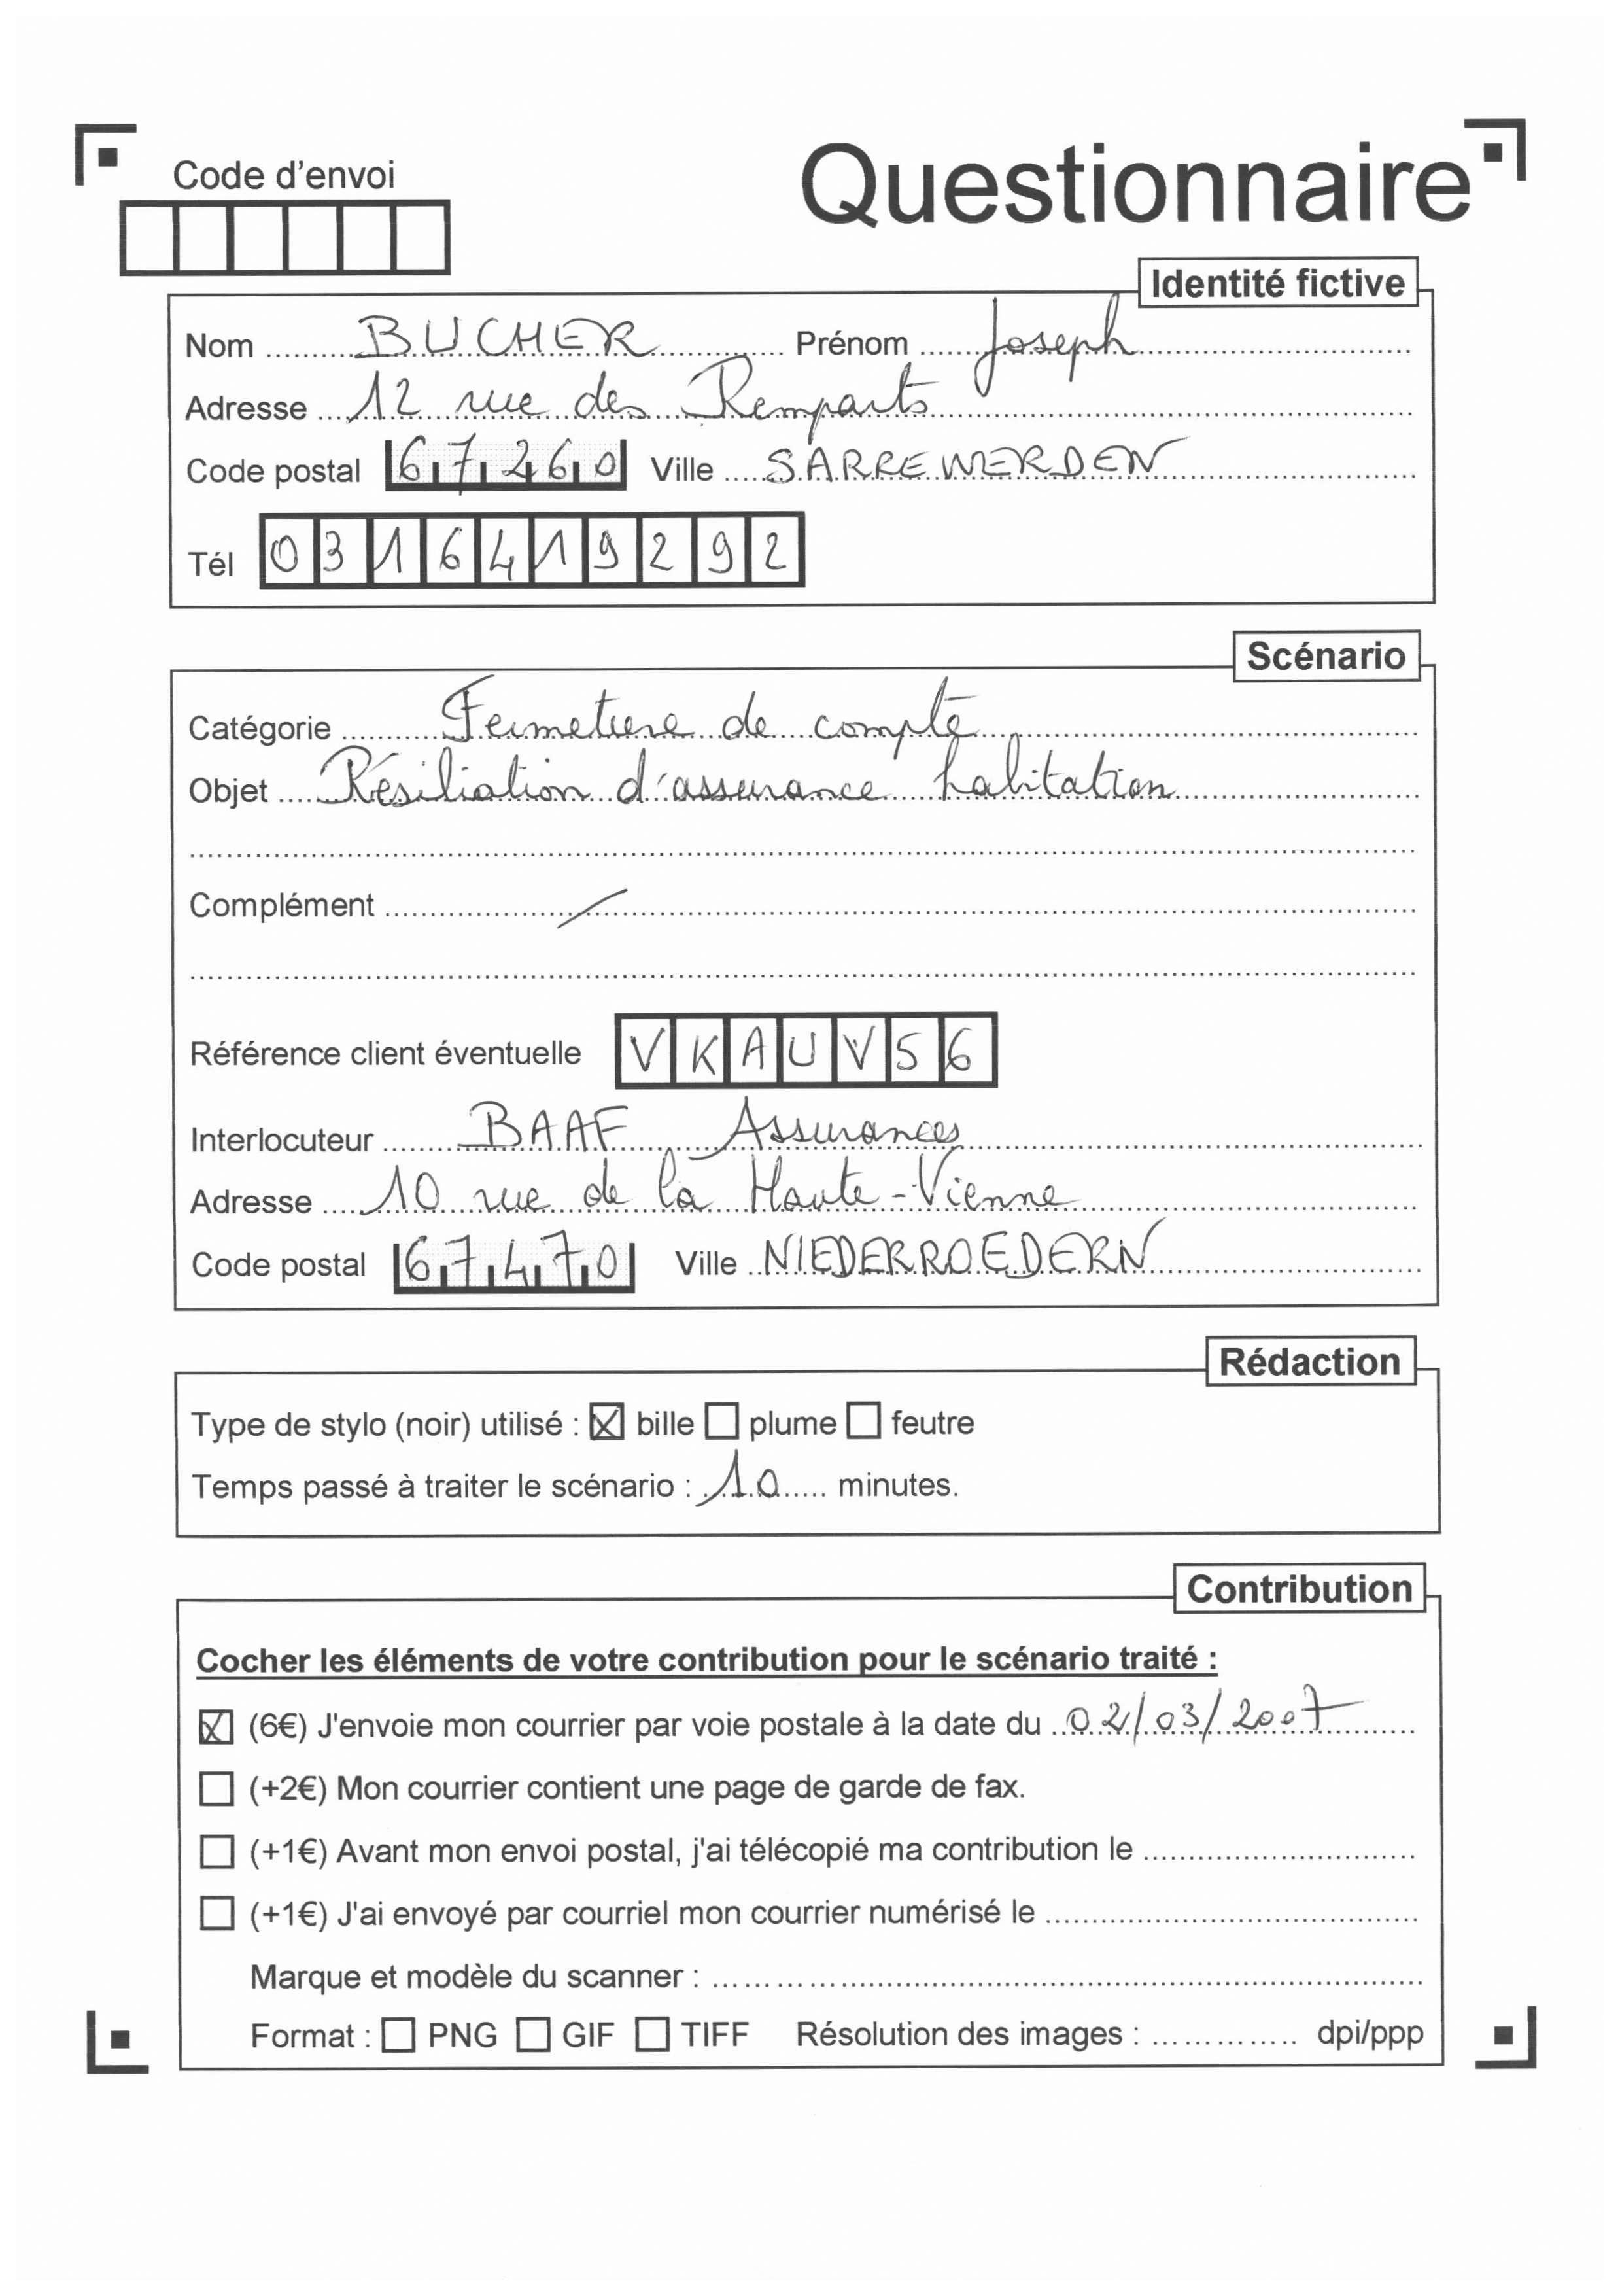 Code d'envoi
Questionnaire
Identité fictive
Nom BUCHER Prénom Joseph
Adresse 12 rue des Remparts
Code postal 67260 Ville SARREWERDEN
Tél 0316419292
Scénario
Catégorie Fermeture de compte
Objet Résiliation d'assurance habitation
Complément /
Référence client éventuelle VKAUV56
Interlocuteur BAAF Assurances
Adresse 10 rue de la Haute-Vienne
Code postal 67470 Ville NIEDERROEDERN
Rédaction
Type de stylo (noir) utilisé : ☒ bille ☐ plume ☐ feutre
Temps passé à traiter le scénario : 10 minutes.
Contribution
Cocher les éléments de votre contribution pour le scénario traité :
☒ (6€) J'envoie mon courrier par voie postale à la date du 02/03/2007
☐ (+2€) Mon courrier contient une page de garde de fax.
☐ (+1€) Avant mon envoi postal, j'ai télécopié ma contribution le
☐ (+1€) J'ai envoyé par courriel mon courrier numérisé le
Marque et modèle du scanner :
Format : ☐ PNG ☐ GIF ☐ TIFF Résolution des images : dpi/ppp